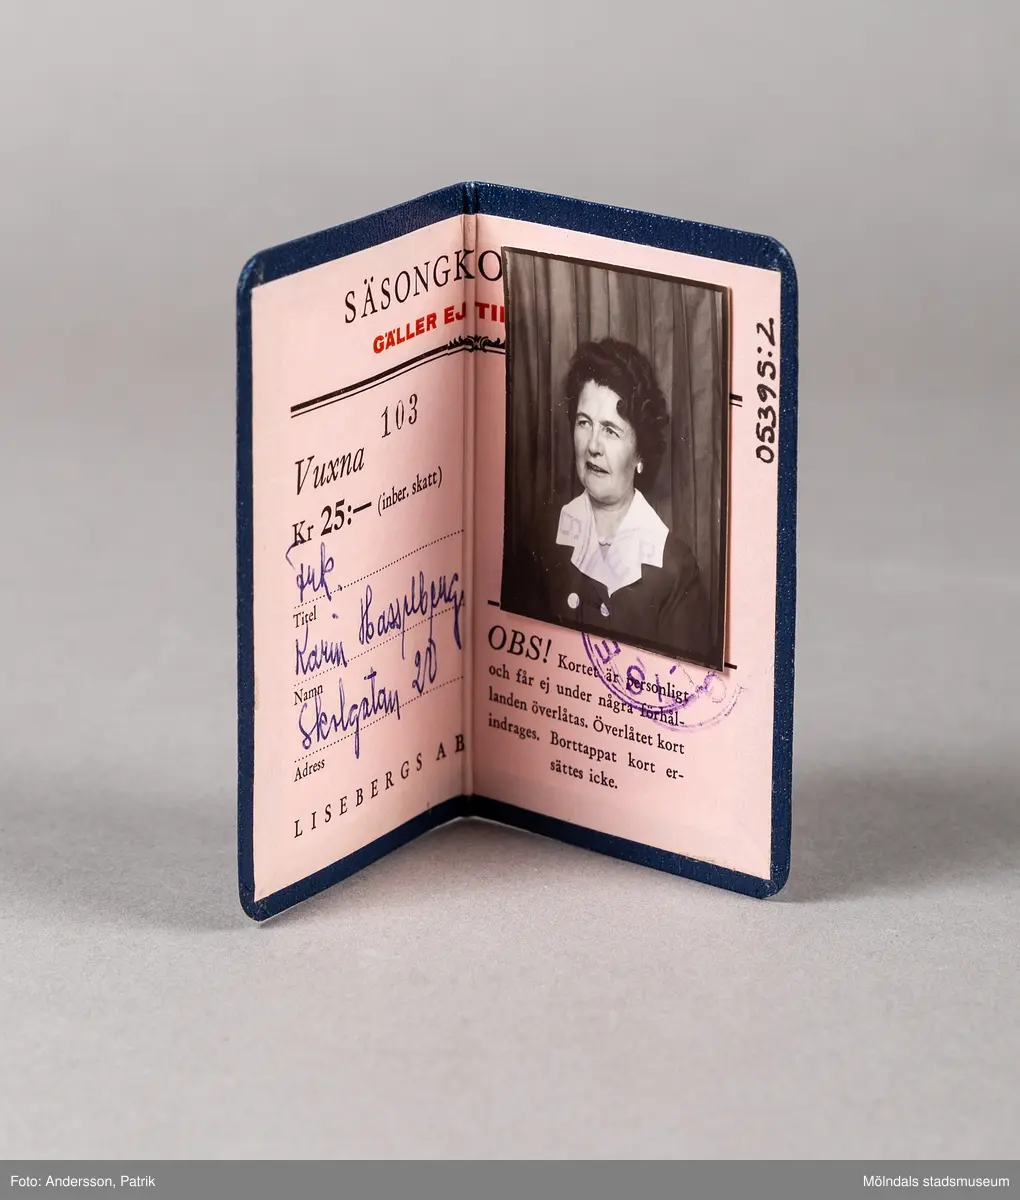 SÄSONGKO
GÄLLER EJ TI
103
Vuxna
Kr 25:— (inber. skatt)
Titel
Karin Hasselberg
Namn
Skolgatan 20
Adress
LISEBERGS AB
OBS! Kortet är personligt
och får ej under några förhål-
landen överlåtas. Överlåtet kort
indrages. Borttappat kort er-
sättes icke.
05395:2
Foto: Andersson, Patrik
Mölndals stadsmuseum